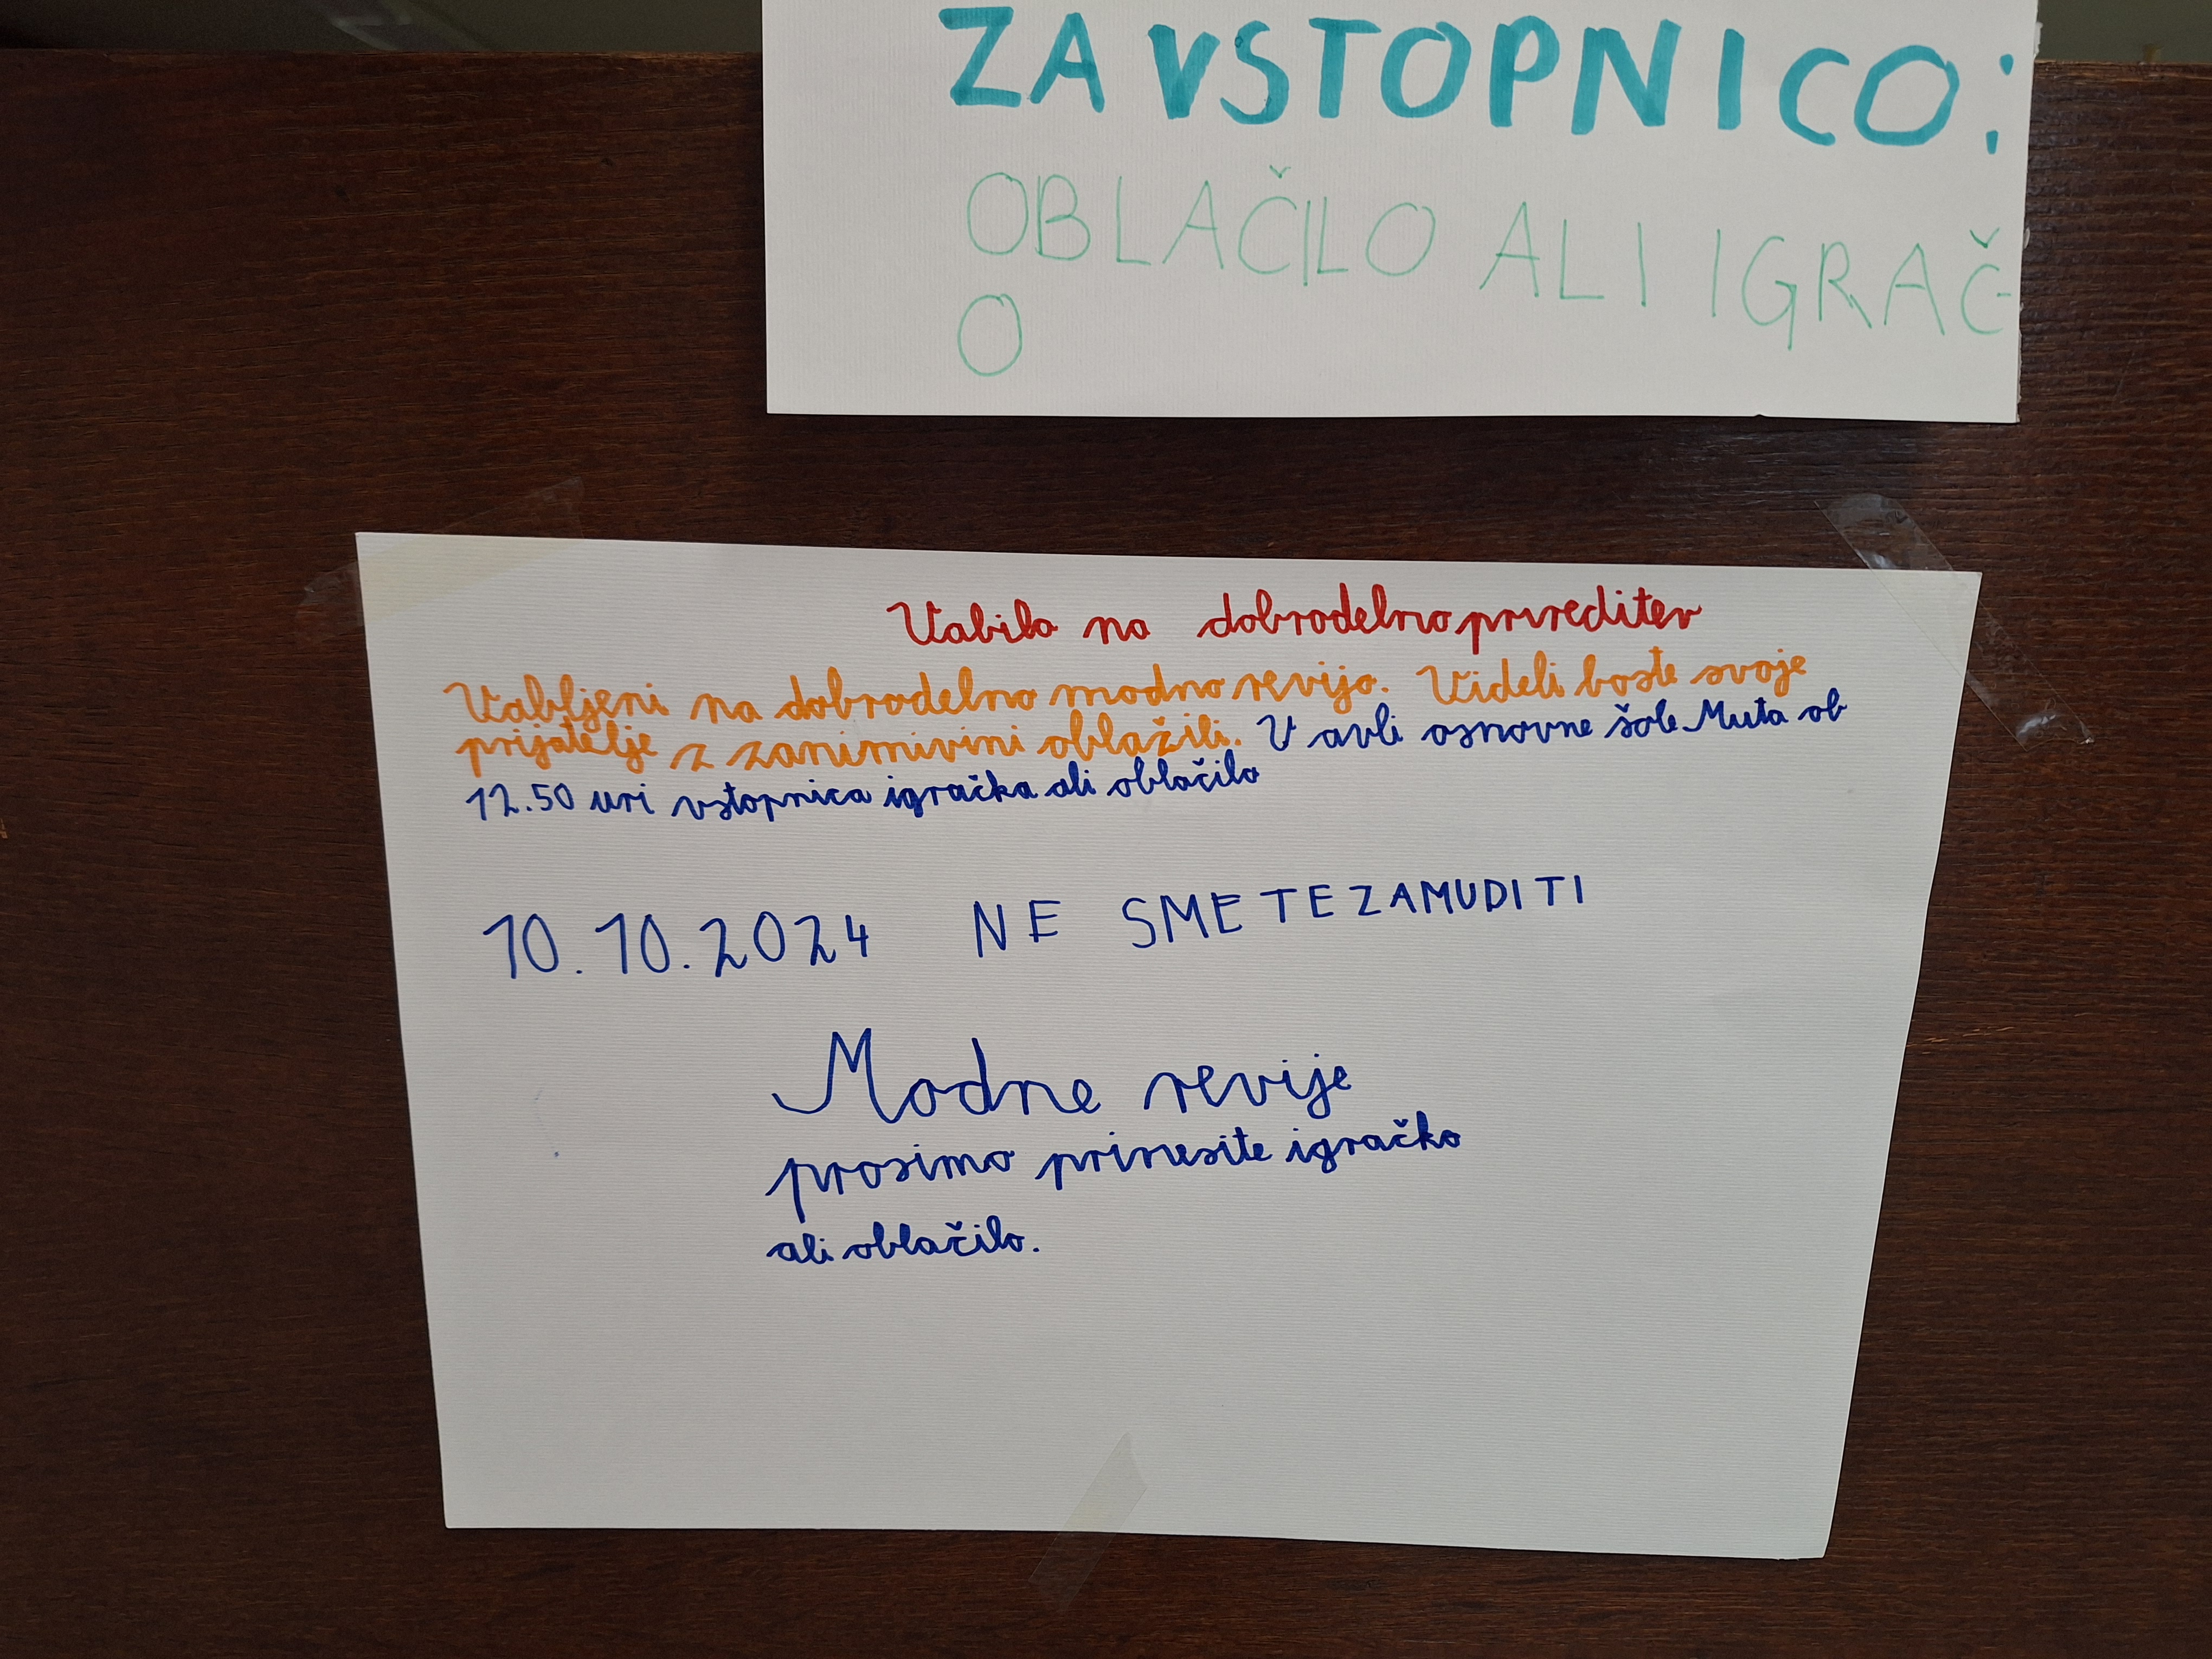 ZA VSTOPNICO:
OBLAČILO ALI IGRAČ-
O
Vabilo na dobrodelno prireditev
Vabljeni na dobrodelno modno revijo. Videli boste svoje
prijatelje z zanimivini oblažili. V avli osnovne šole Muta ob
12.50 uri vstopnica igračka ali oblačilo
10.10.2024 NE SMETE ZAMUDITI
Modne revije
prosimo prinesite igračko
ali oblačilo.